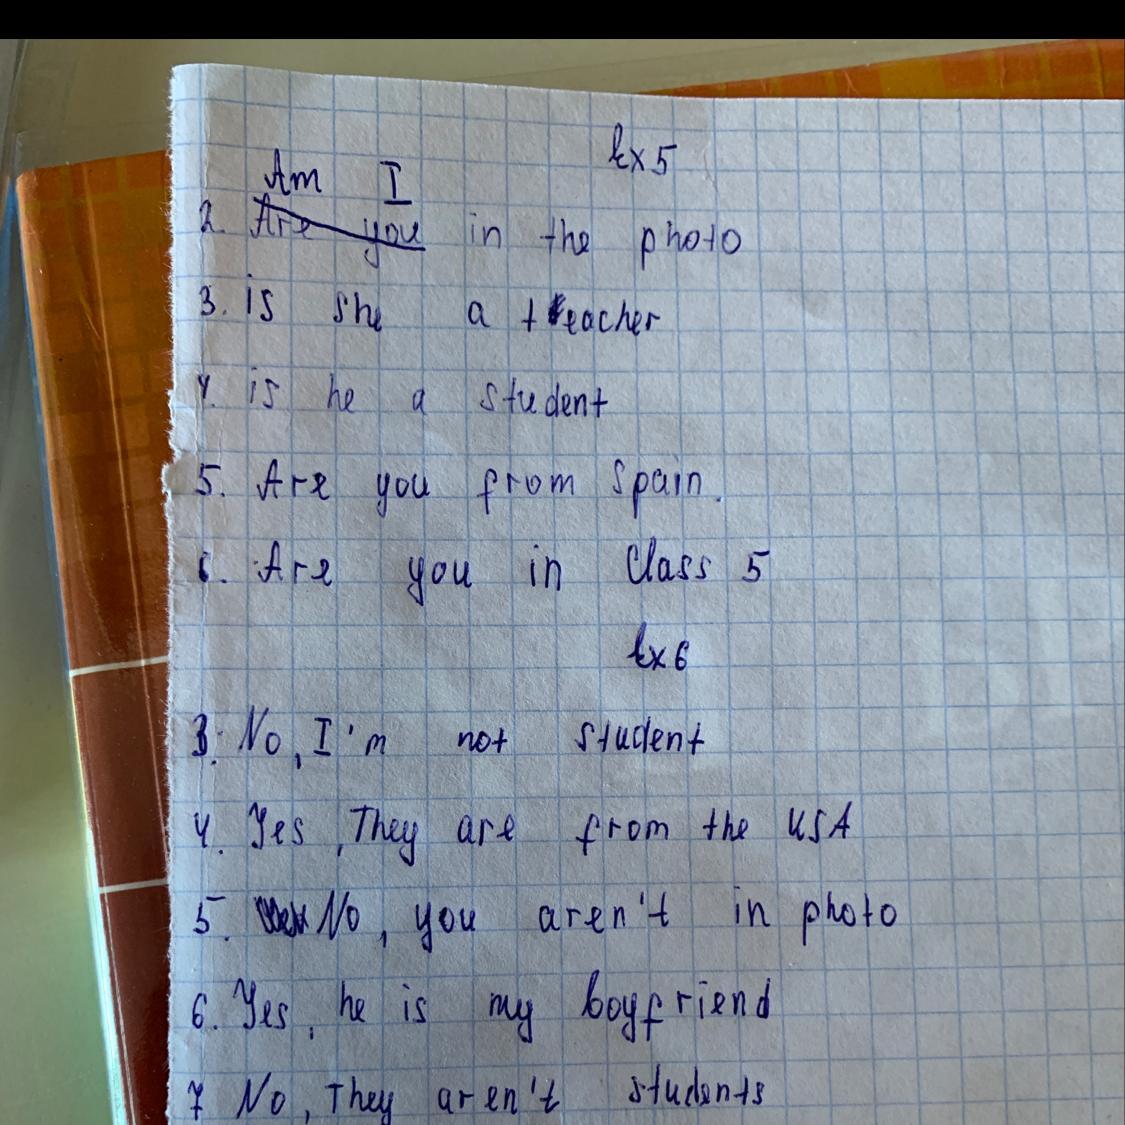 Ex 5
Am I
2. Are you in the photo
3. is she a teacher
4. is he a student
5. Are you from Spain.
6. Are you in Class 5
Ex 6
3. No, I'm not student
4. Yes, They are from the USA
5. No, you aren't in photo
6. Yes, he is my boyfriend
7 No, They aren't students